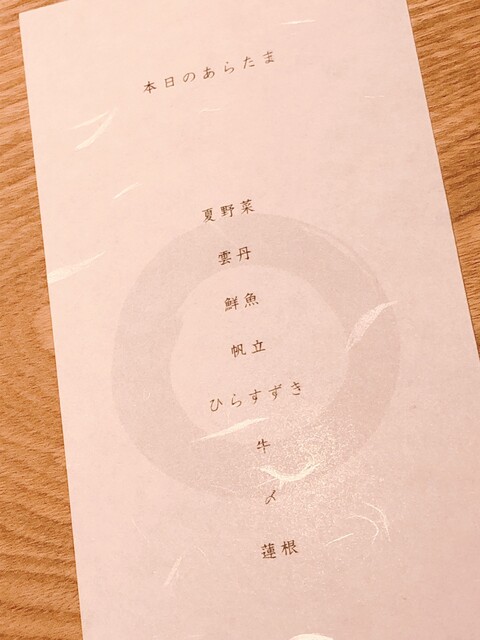 本日のあらたま
夏野菜
雲丹
鮮魚
帆立
ひらすずき
牛
〆
蓮根